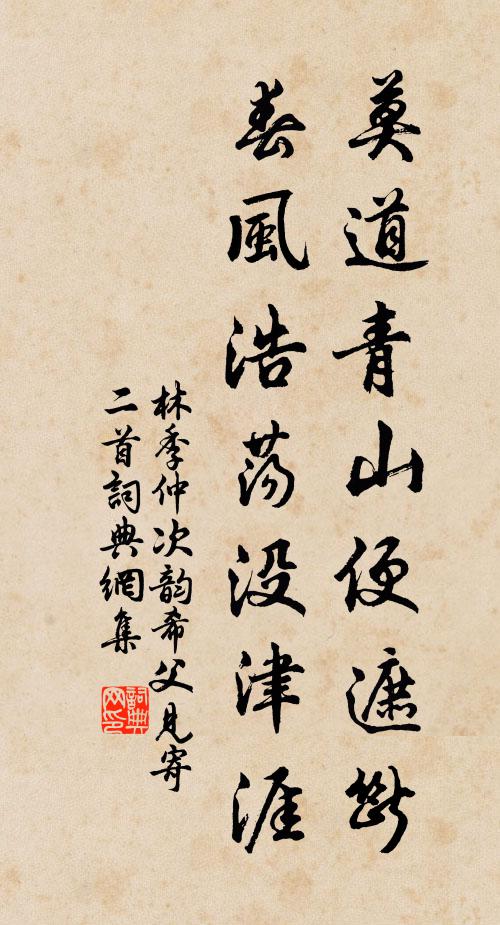 莫道青山便遮斷
春風浩荡没津涯
林季仲次韵希父見寄
二首詞典網集
詞典网印